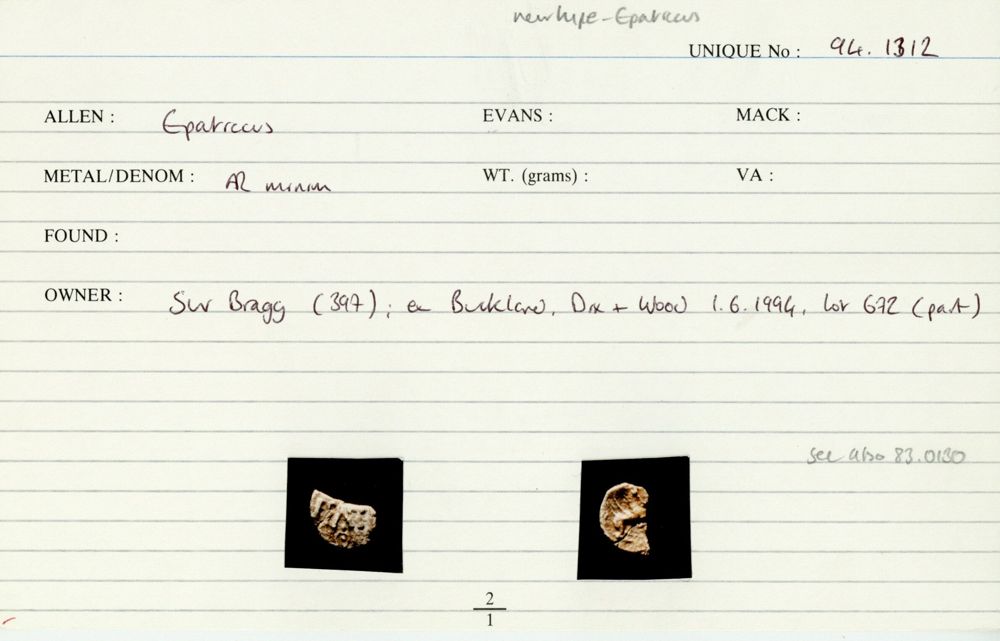 new type - Epaticcus
UNIQUE No : 94. 1312
ALLEN : Epaticcus EVANS : MACK :
METAL/DENOM : AR minim WT. (grams) : VA :
FOUND :
OWNER : Sur Bragg (397); ex Buckland, Dix + Wood 1.6.1994, lot 672 (part)
see also 83.0130
2
1